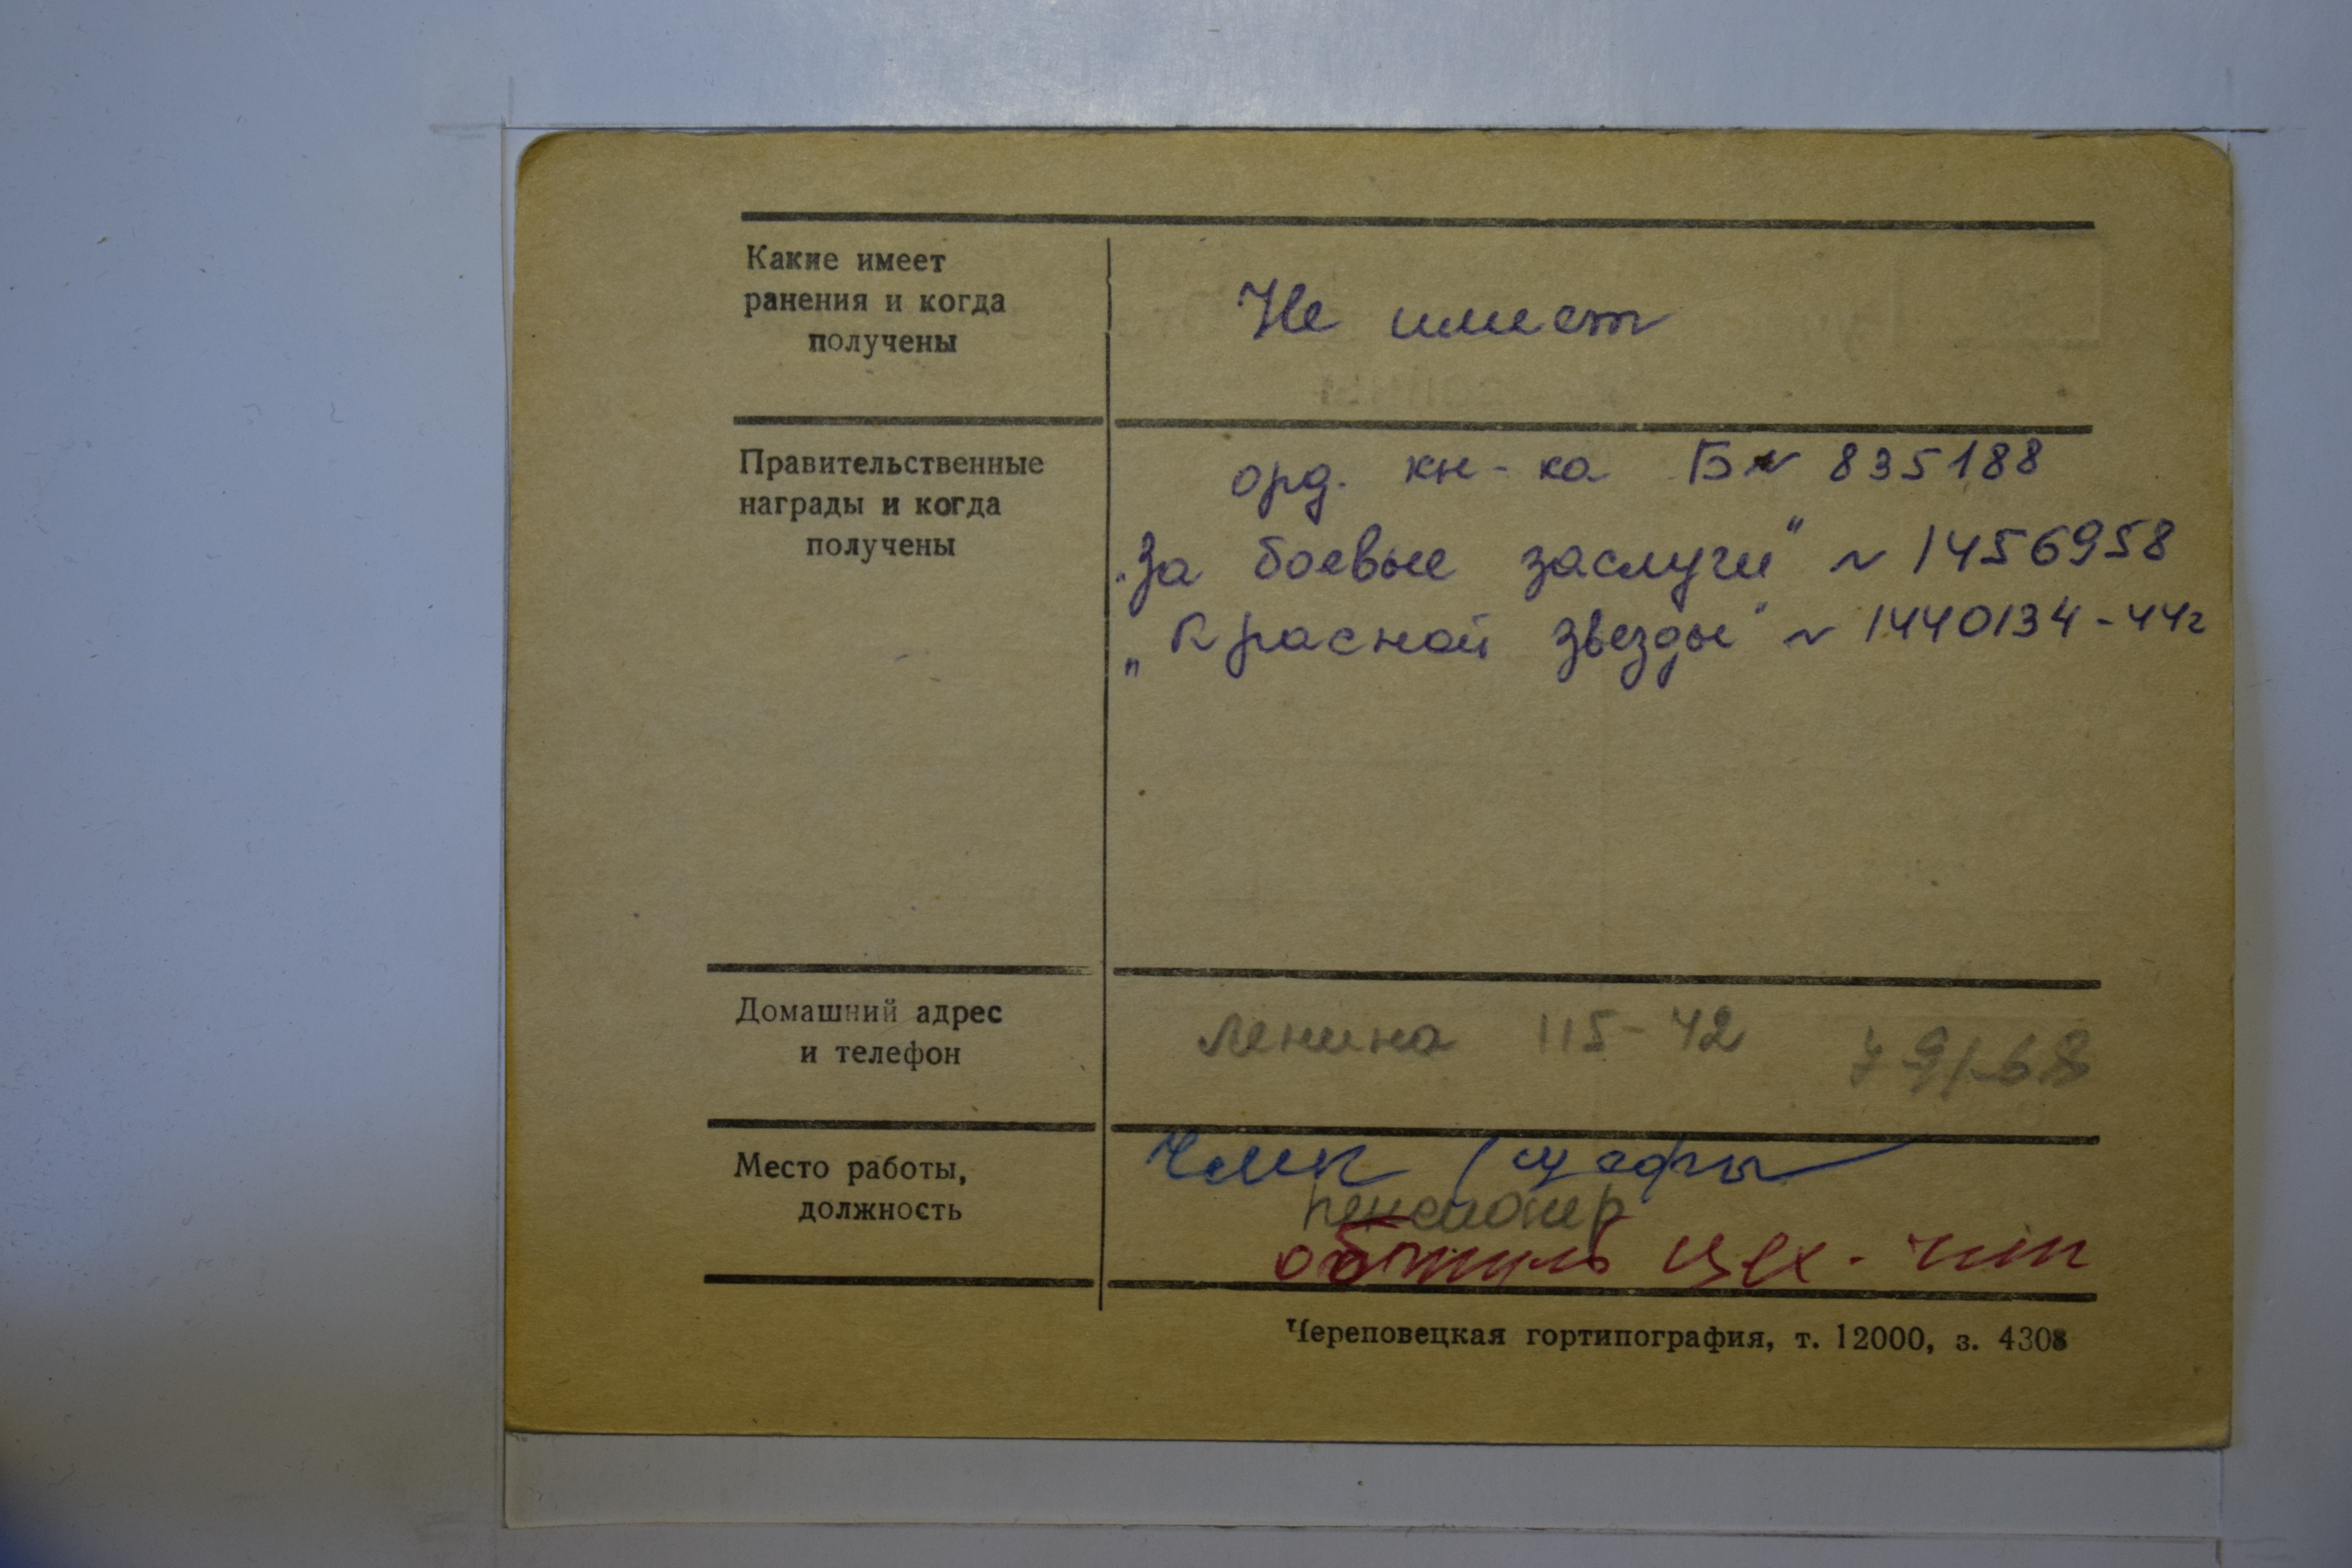 Какие имеет
ранения и когда
получены
Не имеет
Правительственные
награды и когда
получены
орд. кн-ка Б№ 835188
"За боевые заслуги" № 1456958
„Красной звезды" № 1440134-44г
Домашний адрес
и телефон
Ленина 115-42 7-91-68
Место работы,
должность
ЧМК
пенсионер
цех -
Череповецкая гортипография, т. 12000, з. 4308